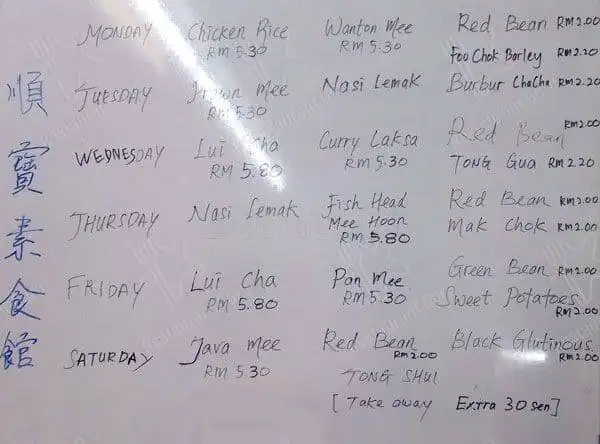 順寶素食館
MONDAY Chicken Rice RM 5.30 Wanton Mee RM 5.30 Red Bean RM 2.00
Foo Chok Barley RM 2.20
TUESDAY Prawn Mee RM 5.30 Nasi Lemak Burbur ChaCha RM 2.20
WEDNESDAY Lui Cha RM 5.80 Curry Laksa RM 5.30 Red Bean RM 2.00
TONG Gua RM 2.20
THURSDAY Nasi Lemak Fish Head Mee Hoon RM 5.80 Red Bean RM 2.00
Mak Chok RM 2.00
FRIDAY Lui Cha RM 5.80 Pan Mee RM 5.30 Green Bean RM 2.00
Sweet Potatoes RM 2.00
SATURDAY Java Mee RM 5.30 Red Bean RM 2.00 Black Glutinous RM 2.00
TONG SHUI
[ Take away Extra 30 sen ]